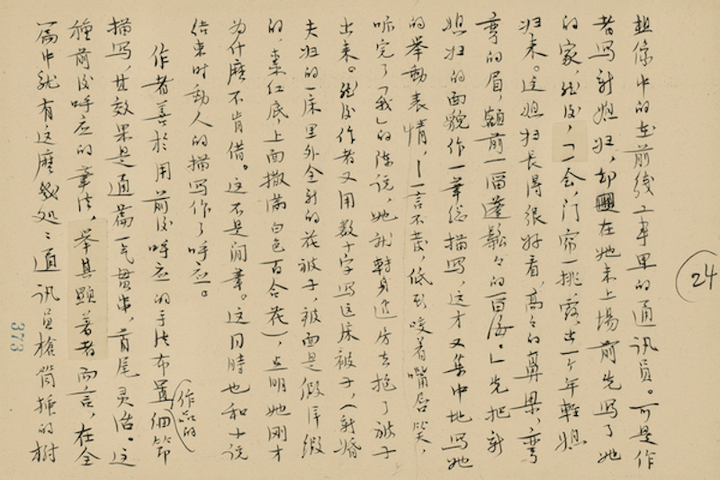 想像中的在前线工事里的通讯员。可是作
者写新媳妇,却在她未上場前先写了她
的家,然後,「一会,门帘一挑,露出一个年轻媳
妇来。这媳妇長得很好看,高高的鼻梁,弯
弯的眉,額前一溜蓬鬆々的留海。」先把新
媳妇的面貌作一筆总描写,这才又集中地写她
的举動表情,——言不发,低头咬着嘴唇笑,
听完了「我」的陈说,她就轉身进房去抱了被子
出来。然後作者又用数十字写这床被子,(新婚
夫妇的一床里外全新的花被子,被面是假洋缎
的,枣红底,上面撒满白色百合花),点明她刚才
为什麽不肯借。这不是闲筆。这同時也和小说
结束时動人的描写作了呼应。
作者善於用前後呼应的手法布置作品的细節
描写,其效果是通篇一气贯串,首尾灵活。这
種前後呼应的筆法,举其顕著者而言,在全
篇中就有这麽幾処:通讯员槍筒插的樹
24
373